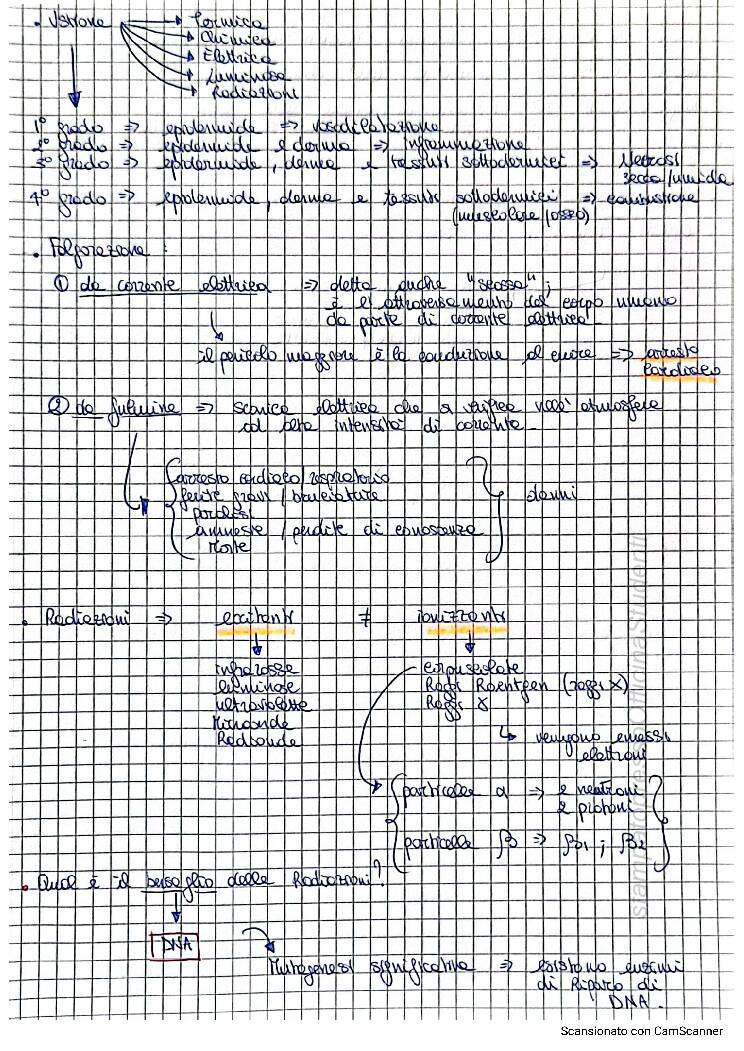 • Ustione → Termica
→ Chimica
→ Elettrica
→ Luminosa
→ Radiazioni
1° grado => epidermide => vasodilatazione
2° grado => epidermide e derma => infiammazione
3° grado => epidermide, derma e tessuti sottodermici => Necrosi
secca/umida
4° grado => epidermide, derma e tessuti sottodermici => combustione
(muscolare/osseo)
• Folgorazione :
① da corrente elettrica => detta anche "scossa" ;
è l'attraversamento del corpo umano
da parte di corrente elettrica
il pericolo maggiore è la conduzione al cuore => arresto
cardiaco
② da fulmine => scarica elettrica che si verifica nell'atmosfera
ad alta intensità di corrente
arresto cardiaco/respiratorio
ferite gravi / bruciature
paralisi
danni
amnesie / perdite di conoscenza
Morte
• Radiazioni => eccitanti ≠ ionizzanti
infrarosse
luminose
ultraviolette
Microonde
Radioonde
corpuscolate
Raggi Roentgen (raggi X)
Raggi γ
↳ vengono emessi
elettroni
particelle α => 2 neutroni
2 protoni
particelle β => β1 ; β2
• Qual è il bersaglio delle Radiazioni?
DNA
Mutagenesi significativa => esistono enzimi
di Riparo di
DNA.
Scansionato con CamScanner